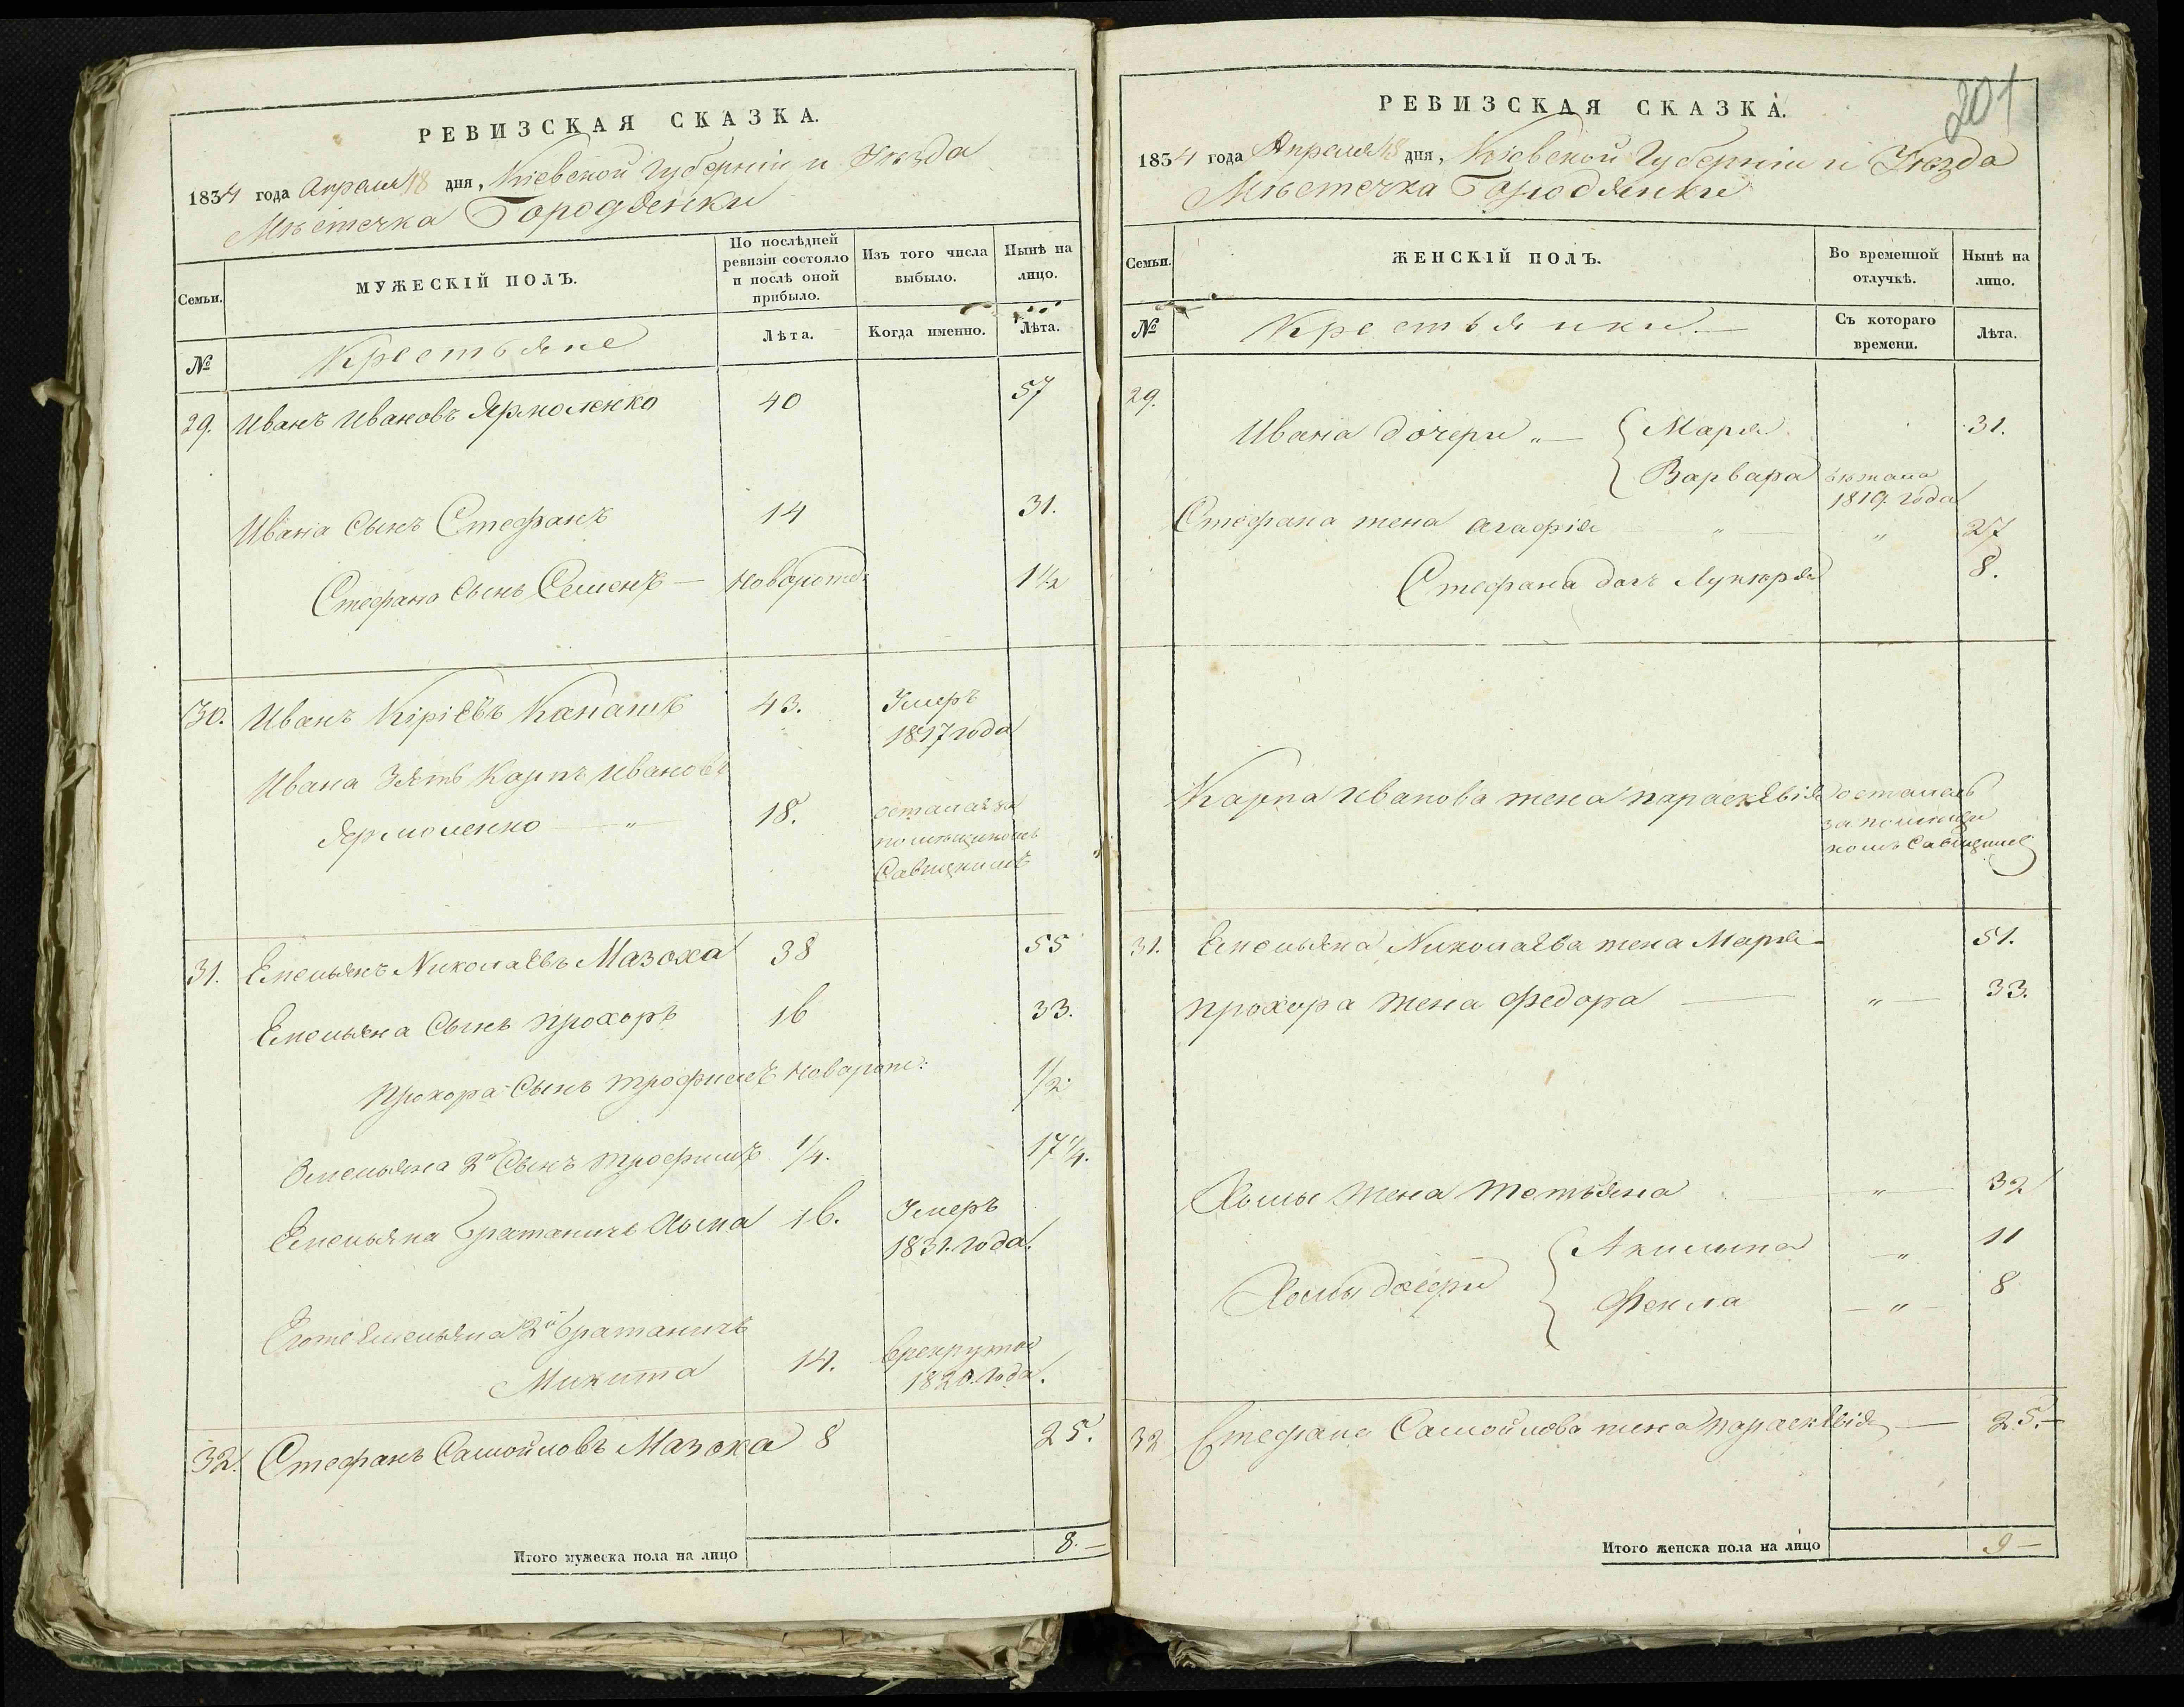 РЕВИЗСКАЯ СКАЗКА.
1834 года Апреля 18 дня, Кіевской Губерніи и Уѣзда
Мѣстечка Городянки
Семьи.
МУЖЕСКІЙ ПОЛЪ.
По послѣдней
ревизіи состояло
и послѣ оной
прибыло.
Изъ того числа
выбыло.
Нынѣ на
лицо.
№
Крестьяне
Лѣта.
Когда именно.
Лѣта.
29. Иванъ Ивановъ Ярмоленко 40 57
Ивана Сынъ Стефанъ 14 31.
Стефана Сынъ Семенъ — Новорожд: 1½
30. Иванъ Кіріевъ Канашъ 43. Умеръ
1817 года
Ивана Зять Карпъ Ивановъ
Ярмоленко — „ — 18. остался за
помѣщикомъ
31. Емельянъ Николаевъ Мазоха 38 55
Емельяна Сынъ Прохоръ 16 33.
Прохора Сынъ Трофимъ Новорож: ½
Емельяна 2й Сынъ Трофимъ ¼. 17¼.
Емельяна Братаничъ Хома 16. Умеръ
1831. года.
Егоже Емельяна 2й Братаничъ
Микита 14. в рекруты
1820. года.
32. Стефанъ Самойловъ Мазоха 8 25.
Итого мужеска пола на лицо 8. —
201
РЕВИЗСКАЯ СКАЗКА.
1834 года Апреля 18 дня, Кіевской Губерніи и Уѣзда
Мѣстечка Городянки
Семьи.
ЖЕНСКІЙ ПОЛЪ.
Во временной
отлучкѣ.
Нынѣ на
лицо.
№
Крестьянки. —
Съ котораго
времени.
Лѣта.
29.
Ивана дочери „ — { Марья 31.
Варвара бѣжала
1819. года
Стефана жена Агафія — „ — „ 27
Стефана дочь Лукерья 8.
Карпа Иванова жена Параскевія осталась
за помѣщи
31. Емельяна Николаева жена Марья — 51.
Прохора жена Федора — „ — 33.
Хомы жена Татьяна — „ — 32
Хомы дочери { Акилина — „ 11
Фекла — „ — 8
32 Стефана Самойлова жена Параскевія — 25. —
Итого женска пола на лицо 9 —